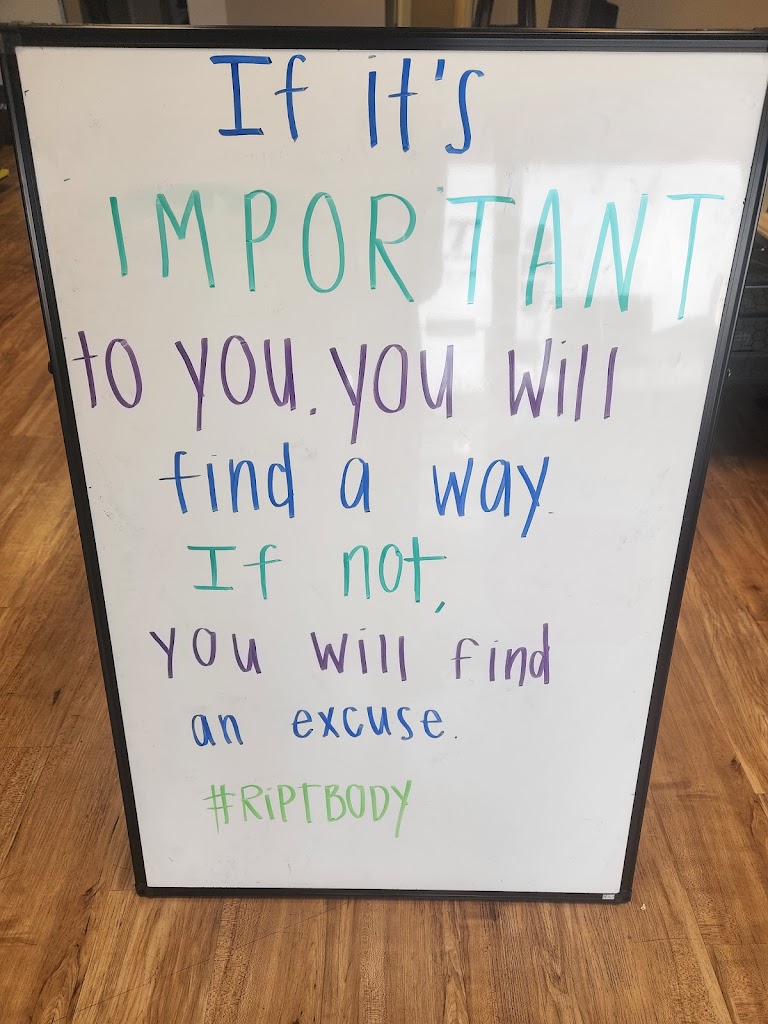 If it's
IMPORTANT
to you. you will
find a way
If not,
you will find
an excuse.
#RiPTBODY